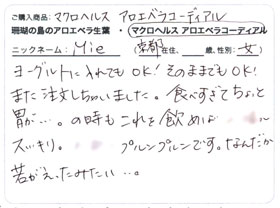 ご購入商品: マクロヘルス アロエベラコーディアル
珊瑚の島のアロエベラ生葉 ・ マクロヘルス アロエベラコーディアル
ニックネーム: Mie (京都在住、 歳、性別: 女)
ヨーグルトに入れてもOK! そのままでもOK!
また注文しちゃいました。食べすぎてちょっと
胃が…。の時もこれを飲めば
スッキリ。 プルンプルンです。なんだか
若がえったみたい…。